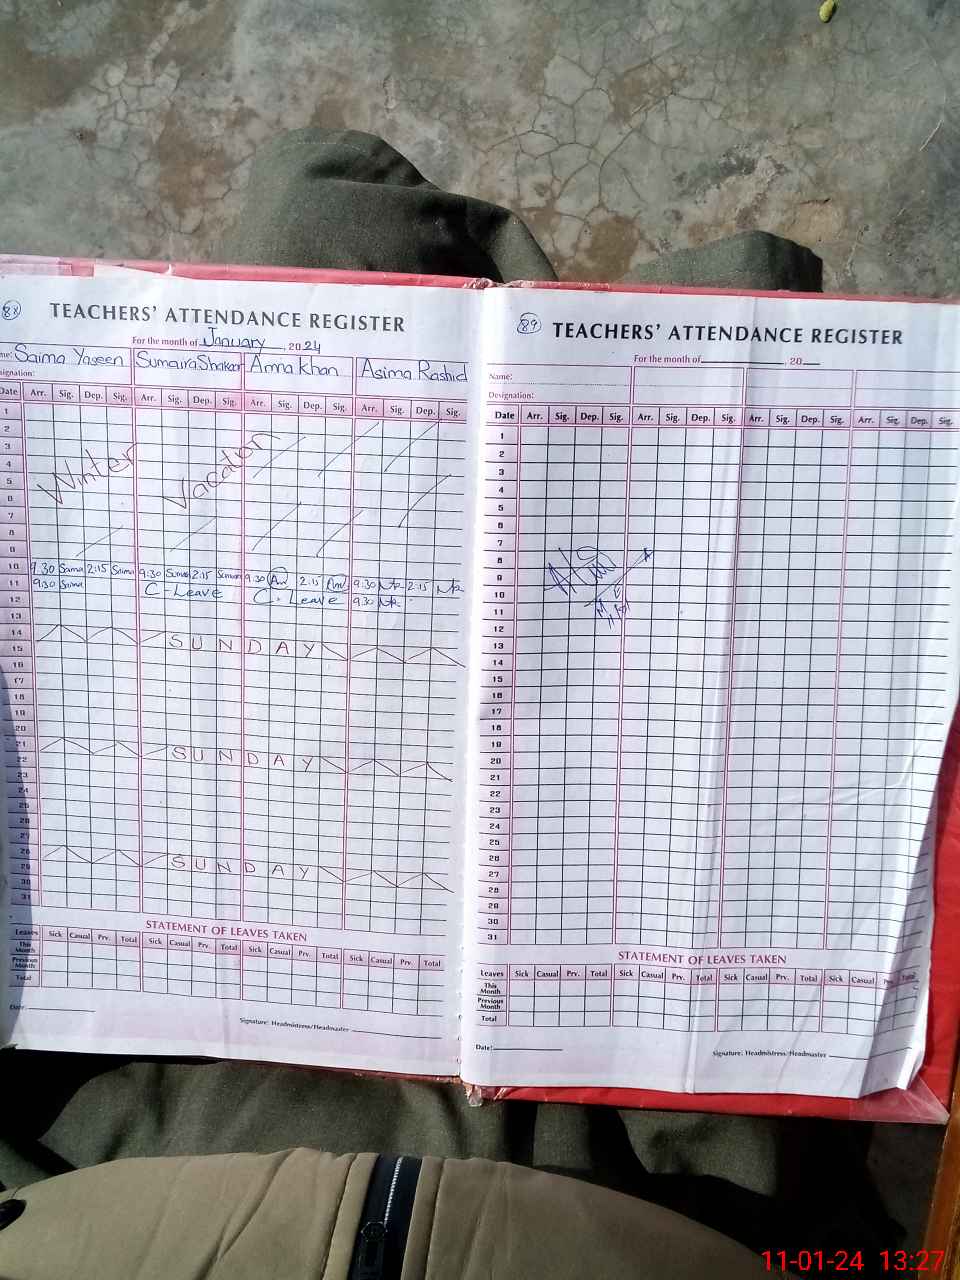 88
TEACHERS' ATTENDANCE REGISTER
For the month of January, 2024
Name: Saima Yaseen Sumaira Shakoor Amna Khan Asima Rashid
Designation:
Date Arr. Sig. Dep. Sig. Arr. Sig. Dep. Sig. Arr. Sig. Dep. Sig. Arr. Sig. Dep. Sig.
1
2
3
4
5
6
7
8
9
Winter Vacation
10 9:30 Saima 2:15 Saima 9:30 2:15 9:30 2:15 9:30 2:15
11 9:30 Saima C-Leave C-Leave 9:30
12
13
14
15
SUNDAY
16
17
18
19
20
21
22
SUNDAY
23
24
25
26
27
28
29
SUNDAY
30
31
STATEMENT OF LEAVES TAKEN
Leaves Sick Casual Prv. Total Sick Casual Prv. Total Sick Casual Prv. Total Sick Casual Prv. Total
This Month
Previous Month
Total
Date:
Signature: Headmistress/Headmaster
89
TEACHERS' ATTENDANCE REGISTER
For the month of , 20
Name:
Designation:
Date Arr. Sig. Dep. Sig. Arr. Sig. Dep. Sig. Arr. Sig. Dep. Sig. Arr. Sig. Dep. Sig.
1
2
3
4
5
6
7
8
9
10
11
12
13
14
15
16
17
18
19
20
21
22
23
24
25
26
27
28
29
30
31
STATEMENT OF LEAVES TAKEN
Leaves Sick Casual Prv. Total Sick Casual Prv. Total Sick Casual Prv. Total Sick Casual Prv. Total
This Month
Previous Month
Total
Date:
Signature: Headmistress/Headmaster
11-01-24 13:27